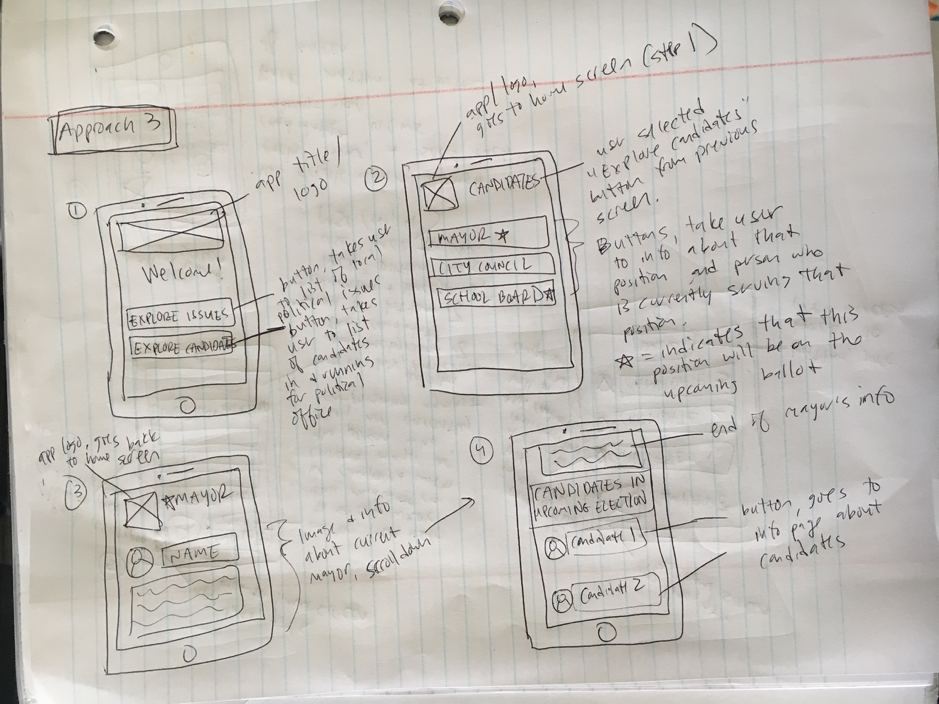 Approach 3
①
app title/
logo
Welcome!
EXPLORE ISSUES
EXPLORE CANDIDATES
button, takes user
to list of local
political issues
button, takes
user to list
of candidates
in & running
for political
office
②
app logo,
goes to home screen (step 1)
CANDIDATES
MAYOR ☆
CITY COUNCIL
SCHOOL BOARD ☆
user selected
"Explore candidates"
button from previous
screen.
Buttons, take user
to info about that
position and person who
is currently serving that
position.
☆ = indicates that this
position will be on the
upcoming ballot
③
app logo, goes back
to home screen
☆ MAYOR
NAME
Image & info
about current
mayor, scroll down
④
end of mayor's info
CANDIDATES IN
UPCOMING ELECTION
Candidate 1
Candidate 2
button, goes to
info page about
candidates